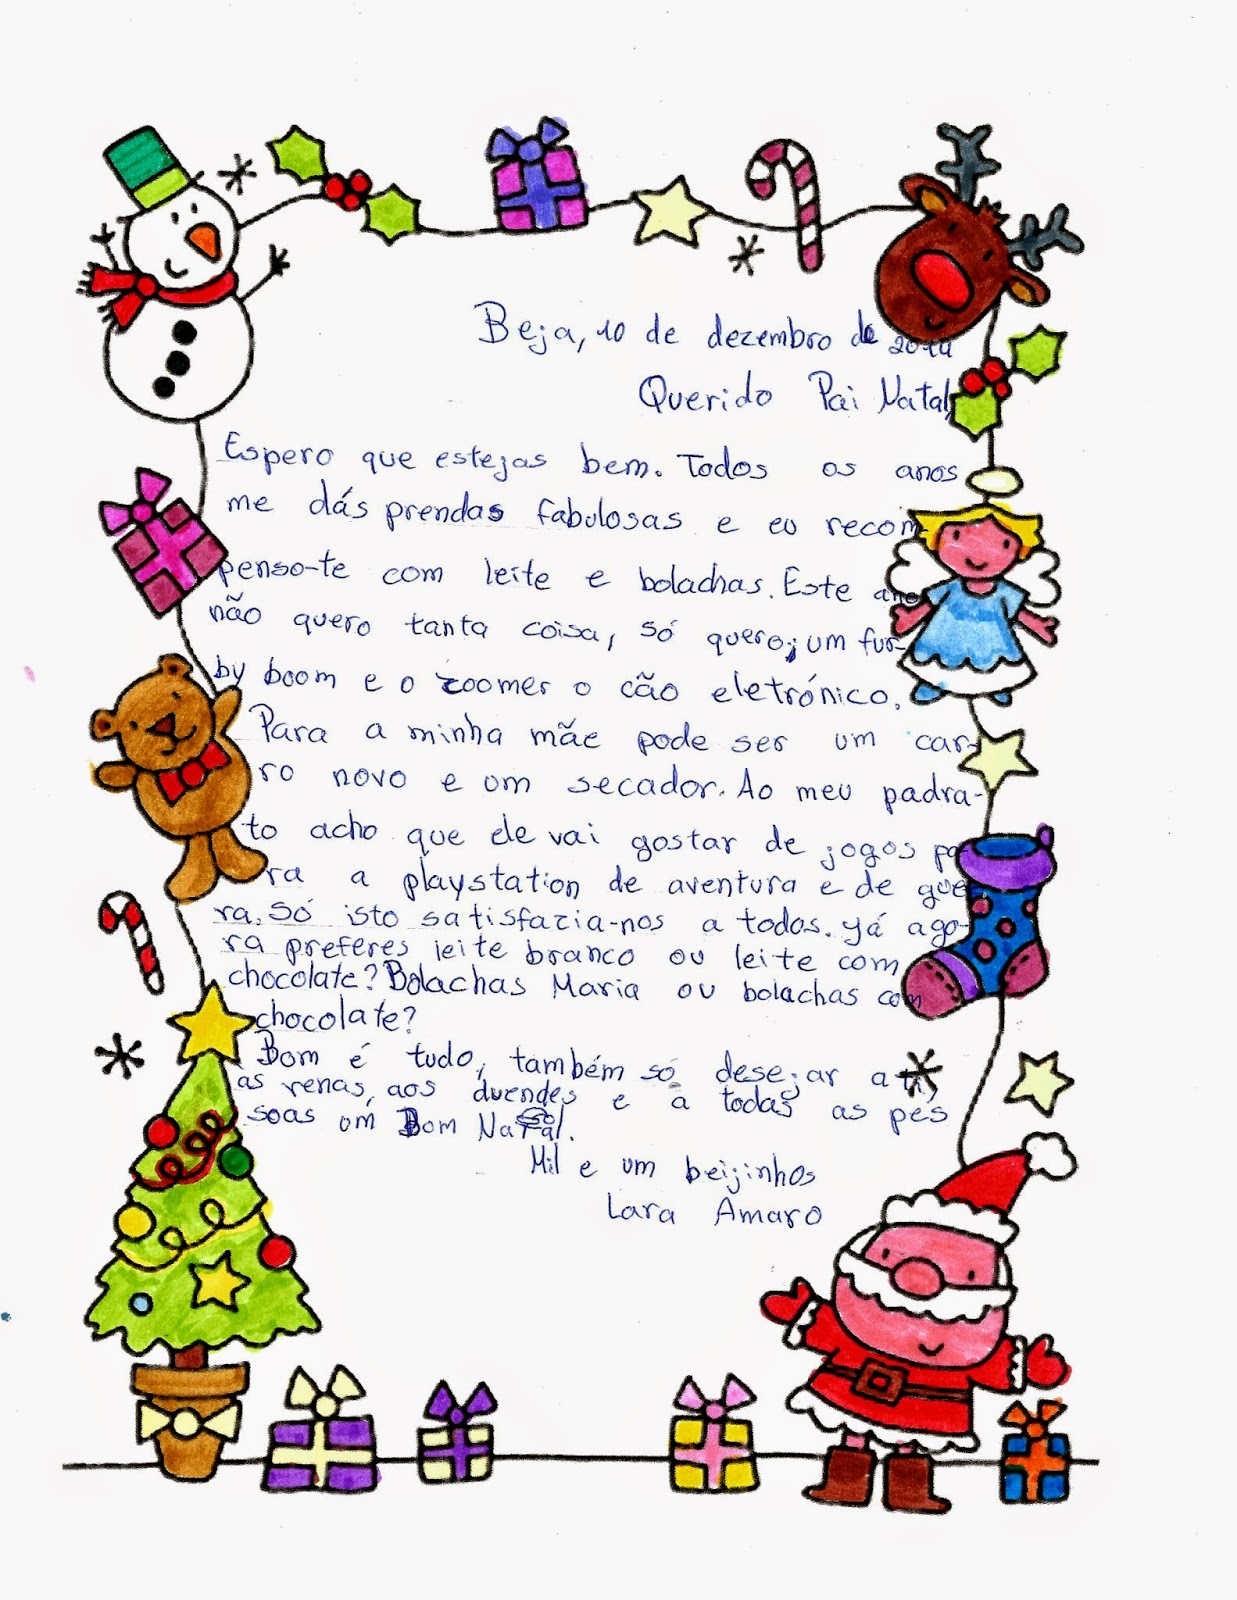 Beja, 10 de dezembro de 2014
Querido Pai Natal,
Espero que estejas bem. Todos os anos
me dás prendas fabulosas e eu recom-
penso-te com leite e bolachas. Este ano
não quero tanta coisa, só quero; um fur-
by boom e o zoomer o cão eletrónico.
Para a minha mãe pode ser um car-
ro novo e um secador. Ao meu padras-
to acho que ele vai gostar de jogos pa
ra a playstation de aventura e de guer
ra. Só isto satisfazia-nos a todos. Já ago-
ra preferes leite branco ou leite com
chocolate? Bolachas Maria ou bolachas com
chocolate?
Bom é tudo, também só desejar a ti,
as renas, aos duendes e a todas as pes
soas um Bom Natal.
Mil e um beijinhos
Lara Amaro